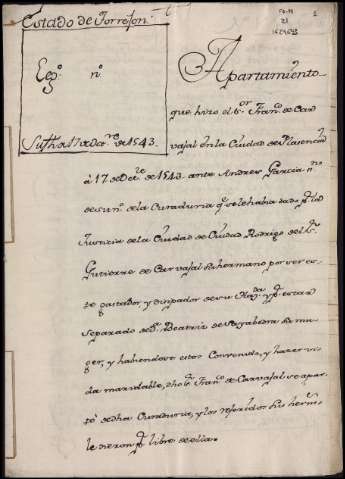 Estado de Torrejon.
Leg.º n.º
Su fha 17 de Dzre. de 1543.
1
Apartamiento
que hizo el Sor. Franco. de Car
vajal en la Ciudad de Plasencia
à 17 de Dzre. de 1543. ante Andres Garcia
de la Curaduria qe. se le habia dado pr.
Justicia de la Ciudad de Ciudad Rodrigo del Sr.
Gutierre de Carvajal su hermano por ser
gastador, y disipador de su y pr. estar
separado de Da. Beatriz de Sayabedra su mu
ger, y habiendose estos Convenido, y hazer vi
da maridable, dho Sr. Franco. de Carvajal se apar
tó de dha Curaduria, y los referidos sus herm
le dieron pr. libre de ella.